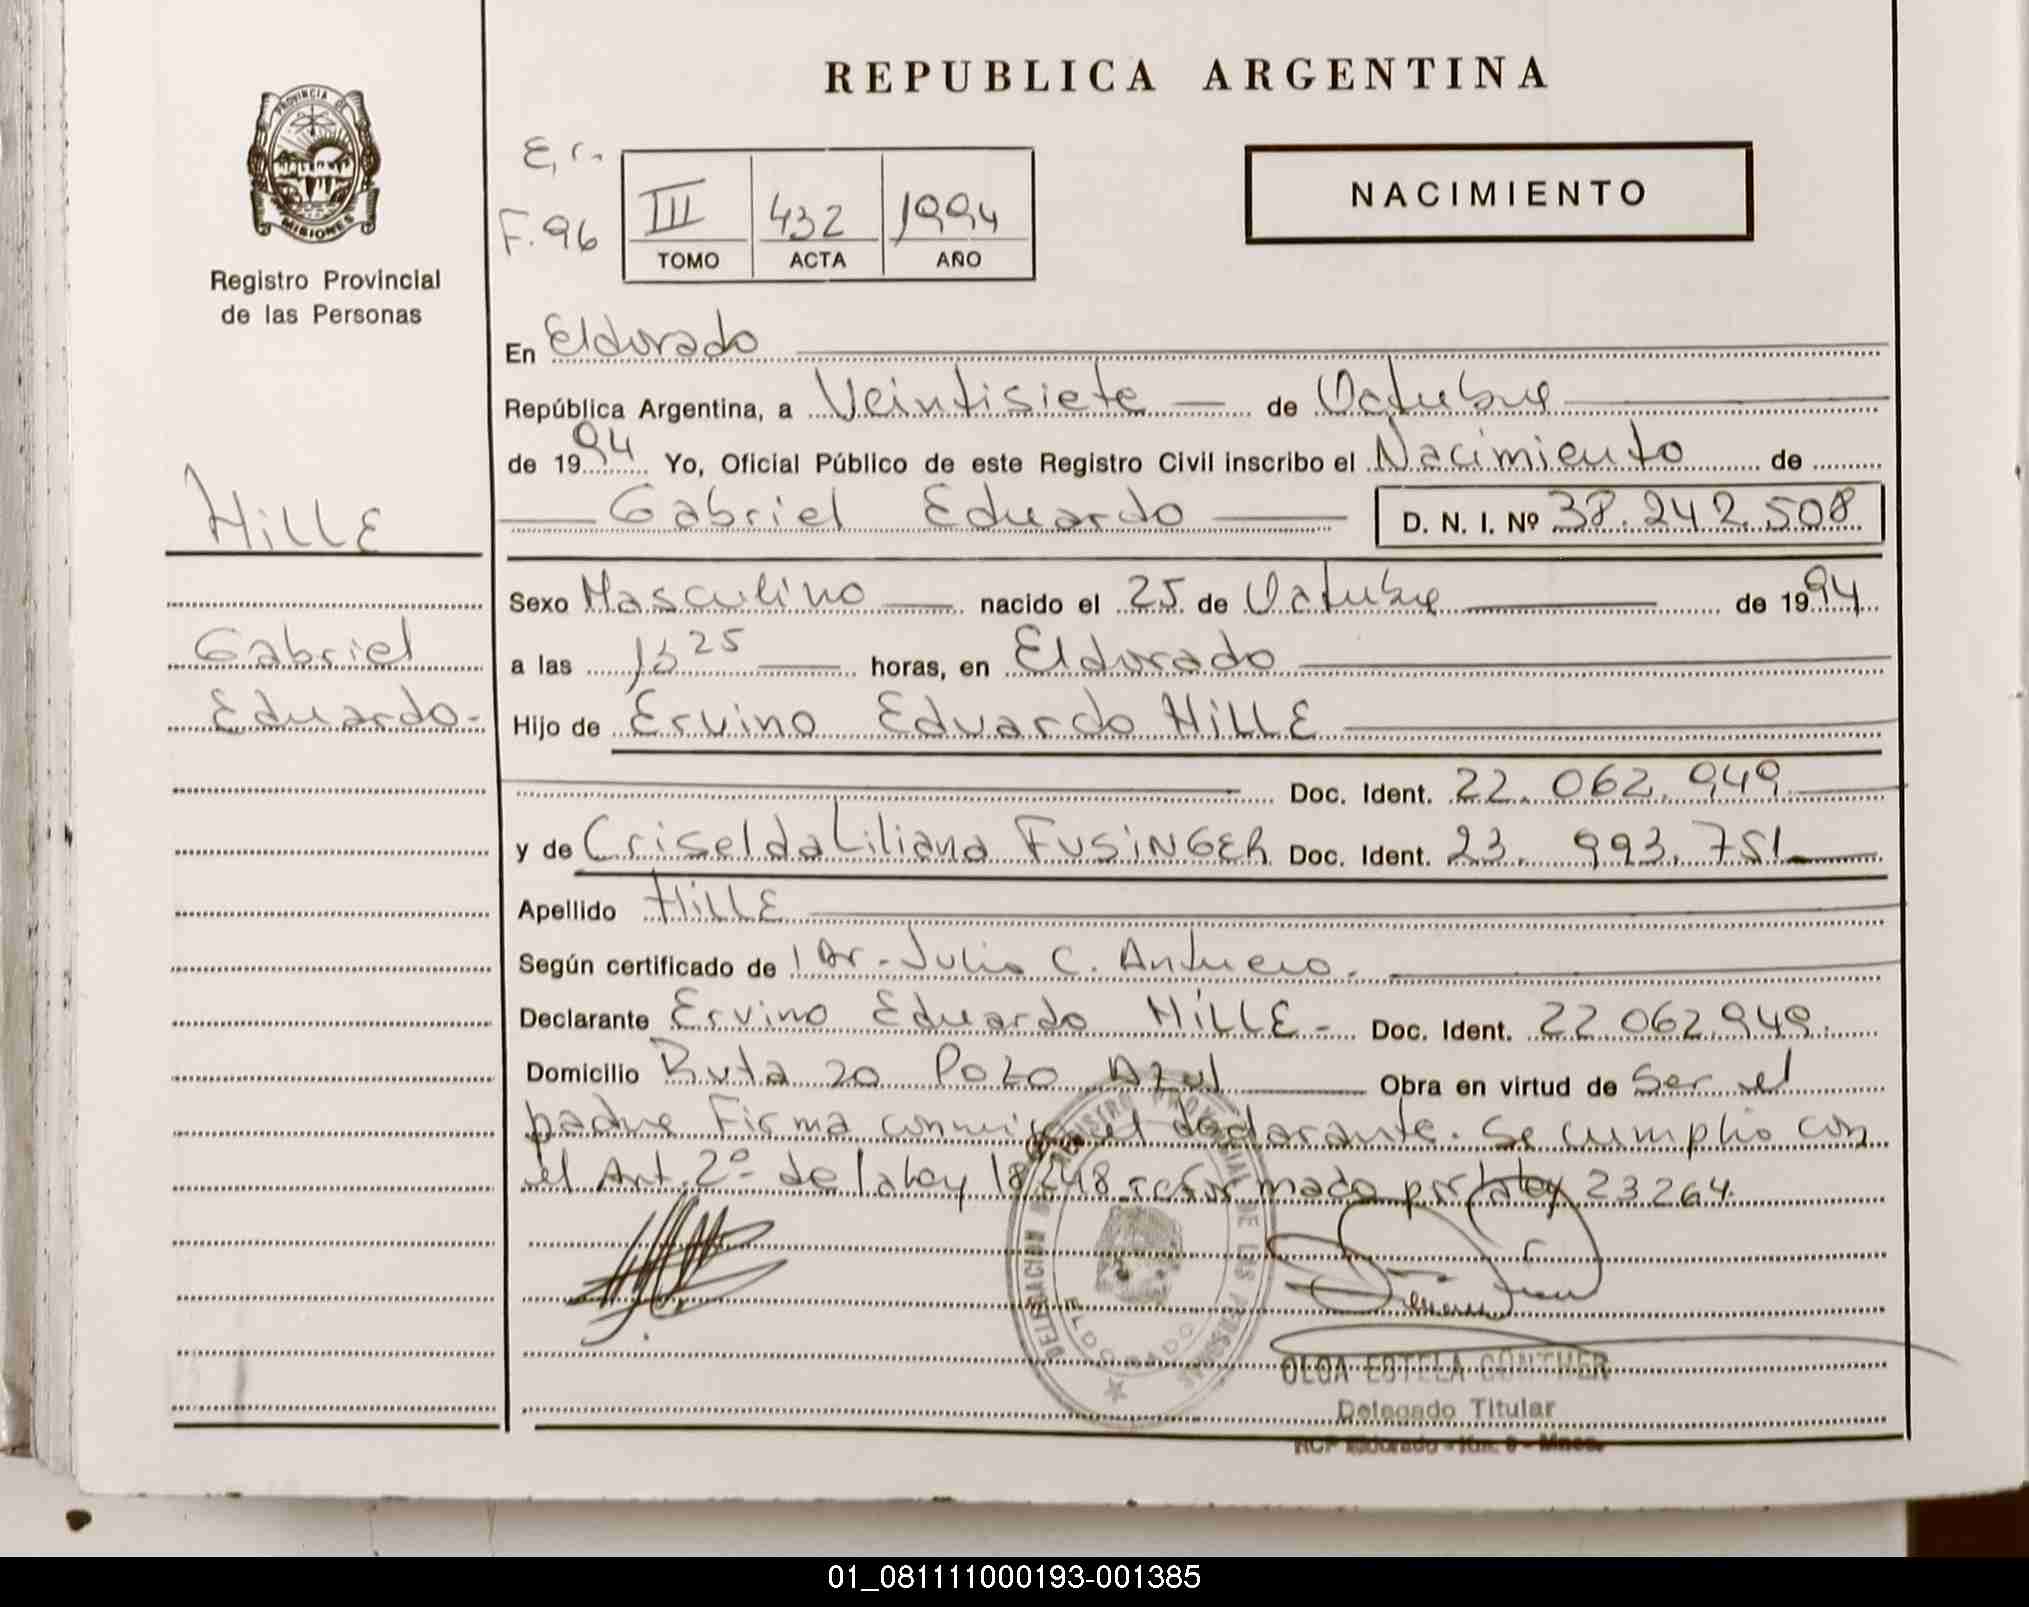 REPUBLICA ARGENTINA
PROVINCIA DE
MISIONES
Registro Provincial
de las Personas
E, c.
F. 96
III 432 1994
TOMO ACTA AÑO
NACIMIENTO
En Eldorado
República Argentina, a Veintisiete de Octubre
de 1994 Yo, Oficial Público de este Registro Civil inscribo el Nacimiento de
Gabriel Eduardo D. N. I. Nº 38.242.508
HiLLE
Gabriel
Eduardo-
Sexo Masculino nacido el 25 de Octubre de 1994
a las 25 horas, en Eldorado
Hijo de Ervino Eduardo HiLLE
Doc. Ident. 22.062.949
y de Criselda Liliana FUSiNGER Doc. Ident. 23.993.751
Apellido HiLLE
Según certificado de Dr. Julio C.
Declarante Ervino Eduardo HiLLE- Doc. Ident. 22.062.949.
Domicilio Ruta 20 Pozo Azul Obra en virtud de Ser el
padre Firma conmigo el declarante. Se cumplio con
el Art. 2º de la ley 18248 reformada por la ley 23264.
DELEGACION DEL REGISTRO PROVINCIAL DE LAS PERSONAS
ELDORADO
OLGA ESTELA GUNTHER
Delegado Titular
RCP Eldorado - Km. 9 - Mnes.
01_081111000193-001385